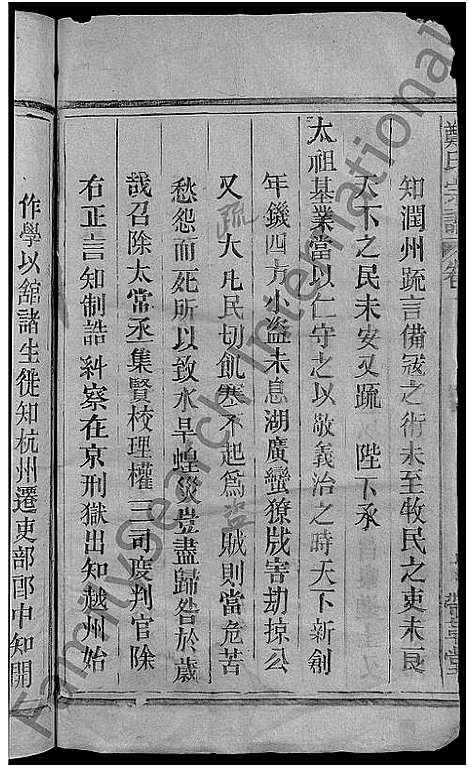 鄭氏宗譜 卷
知潤州䟽言備冦之術未至牧民之吏未良
天下之民未安又䟽 陛下承
太祖基業當以仁守之以敬義治之時天下新創
年饑四方小盗未息湖廣蠻獠戕害劫掠公
又疏大凡民切飢寒不起為盗賊則當危苦
愁怨而死所以致水旱蝗災豈盡歸咎於歳
哉召除太常丞集賢校理權三司度判官除
右正言知制誥糾察在京刑獄出知越州始
作學以舘諸生徙知杭州遷吏部郎中知開
FamilySearch International